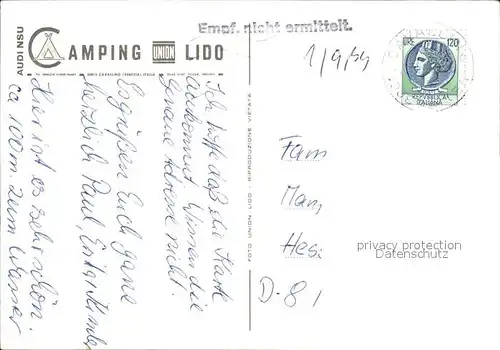 Empf. nicht ermittelt.
AUDI NSU
CAMPING UNION LIDO
1/9,
LIRE 120
REPUBBLICA
ITALIANA
Hier ist es sehr schön.
ca 100m zum Wasser
Ich hoffe daß die Karte
ankommt, wissen die
genaue Adresse nicht.
Es grüßen Euch ganz
herzlich Paul,
Fam
Man,
Hes:
D-81
FOTO UNION LIDO - RIPRODUZIONE VIETATA
privacy protection
Datenschutz